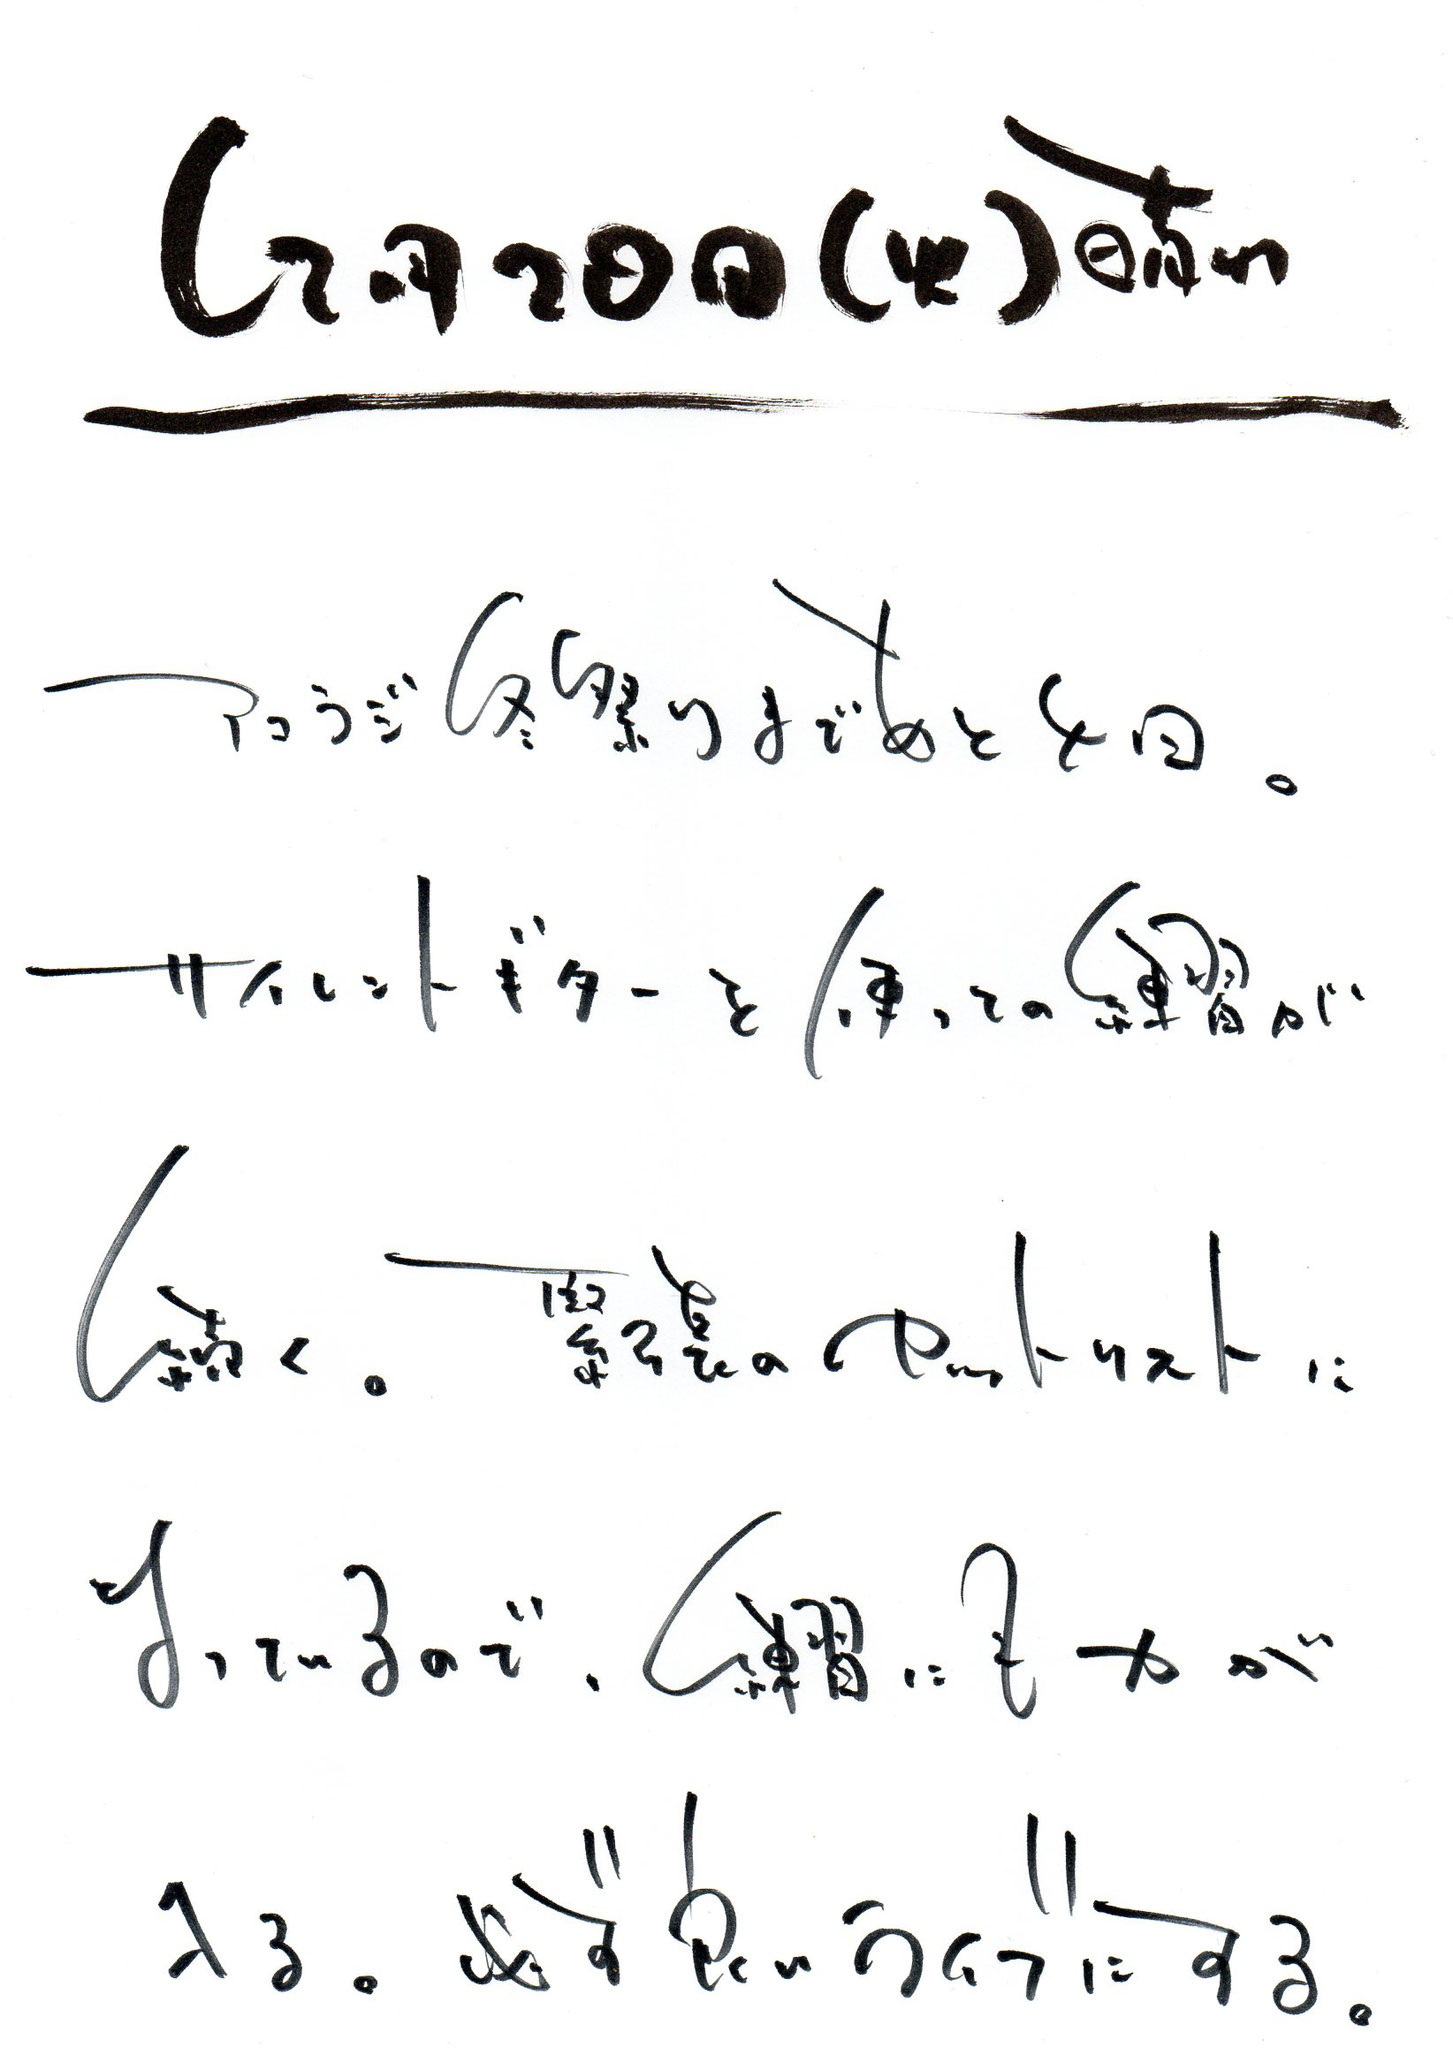 12月20日(火)晴れ
アコラジ冬祭りまであと4日。
サイレントギターを使っての練習が
続く。緊張のセットリストに
なっているので、練習にも力が
入る。必ず良いライブにする。